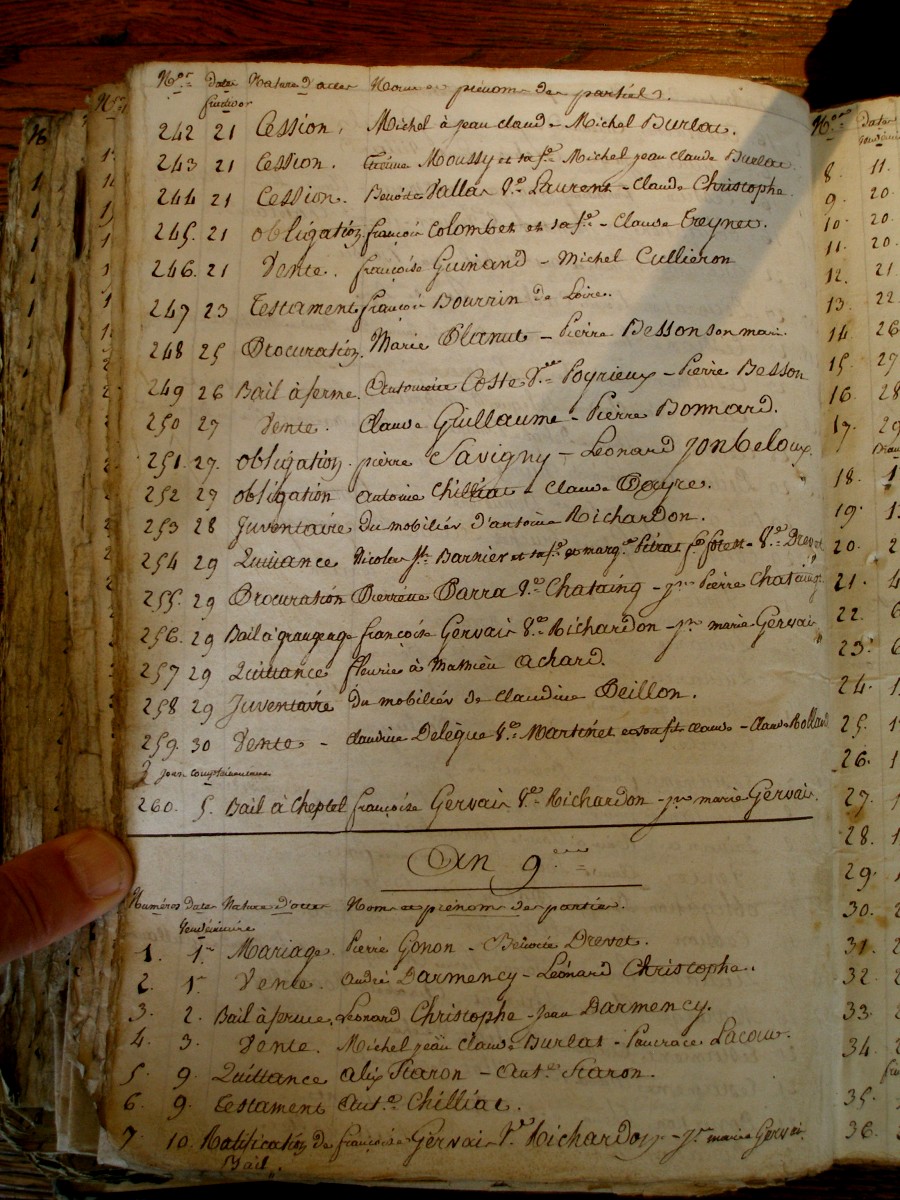 Nos. Dates Nature d'actes Noms et prénoms des parties.
fructidor
242 21 Cession. Michel à jean claude Michel Burlat.
243 21 Cession. Moussy et sa fe. Michel jean Claude Burlat
244 21 Cession. Benoite Valla Ve. Laurent - Claude Christophe
245. 21 obligation françois Colombet et sa fe. - Claude Treynet.
246. 21 Vente. françoise Guinand - Michel Cullieron
247 23 Testament françois Bourrin de Loire.
248 25 Procuration. Marie Planut - Pierre Besson son mari.
249 26 Bail à ferme. Coste Vve Poyrieux - Pierre Besson
250 27 Vente. Claude Guillaume - Pierre Bonnard.
251. 27. obligation. pierre Savigny - Léonard Jonbeloux.
252 27 obligation antoine Chilliat - Claude
253 28 Inventaire du mobilier d'antoine Richardon.
254 29 Quittance Nicolas Barnier et sa fe. et marg.te Pitrat Ve. Drevet
255. 29 Procuration Pierrette Parra Ve. Chataing - jn Pierre Chataing
256. 29 Bail à grangeage françoise Gervais Ve. Richardon - jn marie Gervais
257 29 Quittance fleurie à Mathieu Achard.
258 29 Inventaire du mobilier de Claudine Peillon.
259. 30 Vente - claudine Delègue Ve. Martinet et son fils claude - Claude Rolland
jour complémentaire
260. 5. Bail à Cheptel françoise Gervais Ve. Richardon - jn marie Gervais.
An 9eme
Numéros Dates Nature d'actes Noms et prénoms des parties.
Vendémiaire
1. 1er Mariage. Pierre Gonon - Benoite Drevet.
2. 1er Vente. andré Darmency - Léonard Christophe.
3. 2. Bail à ferme. Léonard Christophe - jean Darmency.
4. 3. Vente. Michel jean Claude Burlat - Pancrace Lacour.
5. 9. Quittance alix Staron - Ant.e Staron.
6. 9. Testament Ant.e Chilliat.
7. 10. Ratification de françoise Gervais Ve. Richardon - jn marie Gervais.
Bail.
Nos. Dates
8. 11.
9. 20.
10. 20.
11. 20.
12. 21.
13. 22.
14 26
15. 27
16. 28
17. 29
18.
19.
20. 2
21. 4
22. 6
23. 6
24. 1
25. 1
26. 1
27.
28.
29.
30.
31.
32.
33.
34.
35.
36.